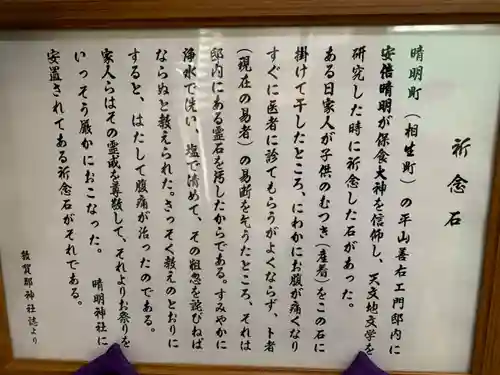 祈念石
晴明町（相生町）の平山善右エ門邸内に
安倍晴明が保食大神を信仰し、天文地文学を
研究した時に祈念した石があった。
ある日家人が子供のむつき（産着）をこの石に
掛けて干したところ、にわかにお腹が痛くなり
すぐに医者に診てもらうがよくならず、卜者
（現在の易者）の易断を乞うたところ、それは
邸内にある霊石を汚したからである。すみやかに
浄水で洗い、塩で清めて、その粗怠を詫びねば
ならぬと教えられた。さっそく教えのとおりに
すると、はたして腹痛が治ったのである。
家人らはその霊威を尊敬して、それよりお祭りを
いっそう厳かにおこなった。　晴明神社に
安置されてある祈念石がそれである。
敦賀郡神社誌より